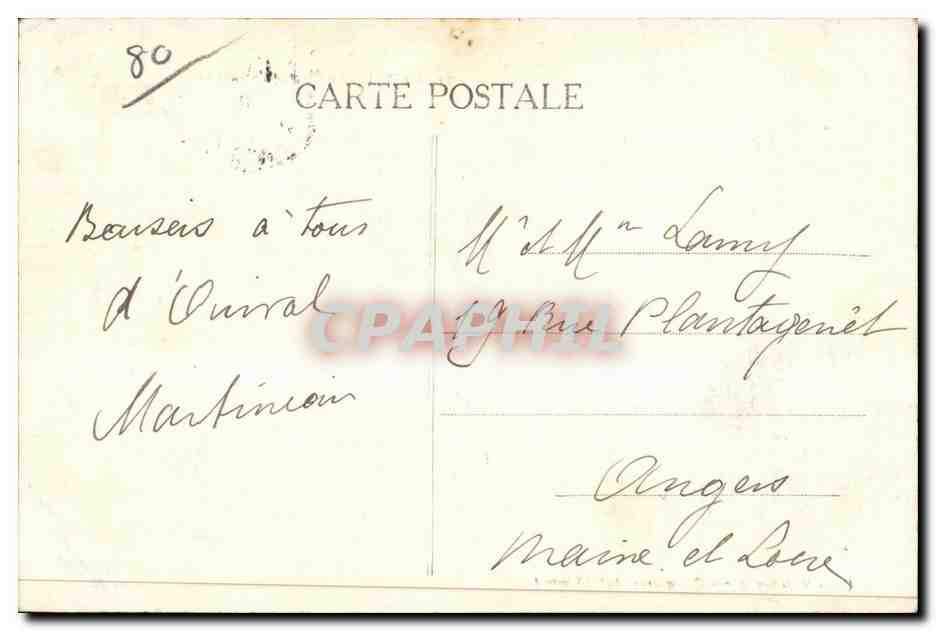 80
CARTE POSTALE
Baisers à tous
d'Onival
Martineau
Mr et Mme Lamy
19 Rue Plantagenêt
Angers
Maine et Loire
CPAPHIL